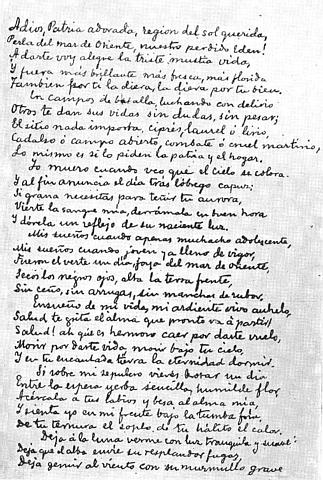 Adios, Patria adorada, region del sol querida,
Perla del mar de Oriente, nuestro perdido Eden!
A darte voy alegre la triste mustia vida,
Y fuera más brillante más fresca, más florida
Tambien por ti la diera, la diera por tu bien.
En campos de batalla, luchando con delirio
Otros te dan sus vidas sin dudas, sin pesar;
El sitio nada importa, ciprés, laurel ó lirio,
Cadalso ó campo abierto, combate ó cruel martirio,
Lo mismo es si lo piden la patria y el hogar.
Yo muero cuando veo que el cielo se colora
Y al fin anuncia el día tras lóbrego capuz;
Si grana necesitas para teñir tu aurora,
Vierte la sangre mía, derrámala en buen hora
Y dórela un reflejo de su naciente luz.
Mis sueños cuando apenas muchacho adolescente,
Mis sueños cuando joven ya lleno de vigor,
Fueron el verte un día, joya del mar de oriente,
Secos los negros ojos, alta la tersa frente,
Sin ceño, sin arrugas, sin manchas de rubor.
Ensueño de mi vida, mi ardiente vivo anhelo,
Salud te grita el alma que pronto va á partir!
Salud! ah que es hermoso caer por darte vuelo,
Morir por darte vida, morir bajo tu cielo,
Y en tu encantada tierra la eternidad dormir.
Si sobre mi sepulcro vieres brotar un dia
Entre la espesa yerba sencilla, humilde flor
Acércala a tus labios y besa al alma mía,
Y sienta yo en mi frente bajo la tumba fría
De tu ternura el soplo, de tu hálito el calor.
Deja á la luna verme con luz tranquila y suave:
Deja que el alba envíe su resplandor fugaz,
Deja gemir al viento con su murmullo grave